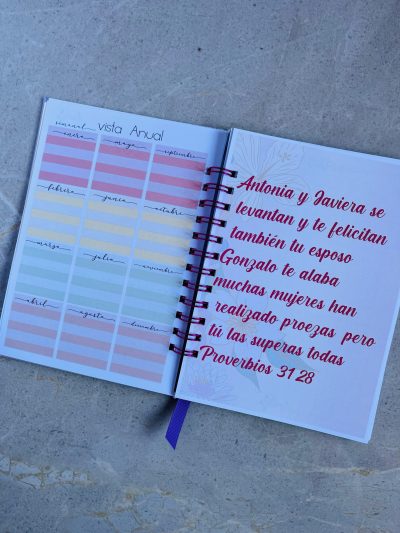 semanal vista Anual
enero mayo septiembre
febrero junio octubre
marzo julio noviembre
abril agosto diciembre
Antonia y Javiera se
levantan y te felicitan
también tu esposo
Gonzalo te alaba
muchas mujeres han
realizado proezas pero
tú las superas todas
Proverbios 31 28